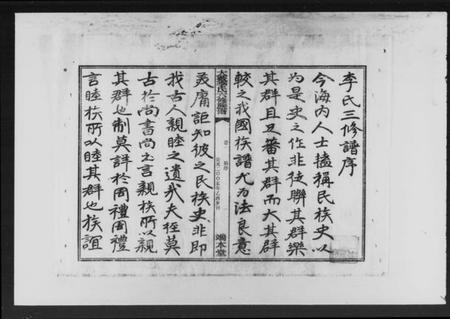 李氏三修譜序
今海內人士摭稱民族史以
為是史之作非徒聯其群樂
其群且又蕃其群而大其群
較之我國族譜尤為法良意
美庸詎知彼之民族史非即
我古人親睦之遺哉夫經莫
古於尚書尚書言親族所以親
其群也制莫詳於周禮周禮
言睦族所以睦其群也族誼
李氏六修族譜
卷一
公元二〇〇五年乙酉
端本堂